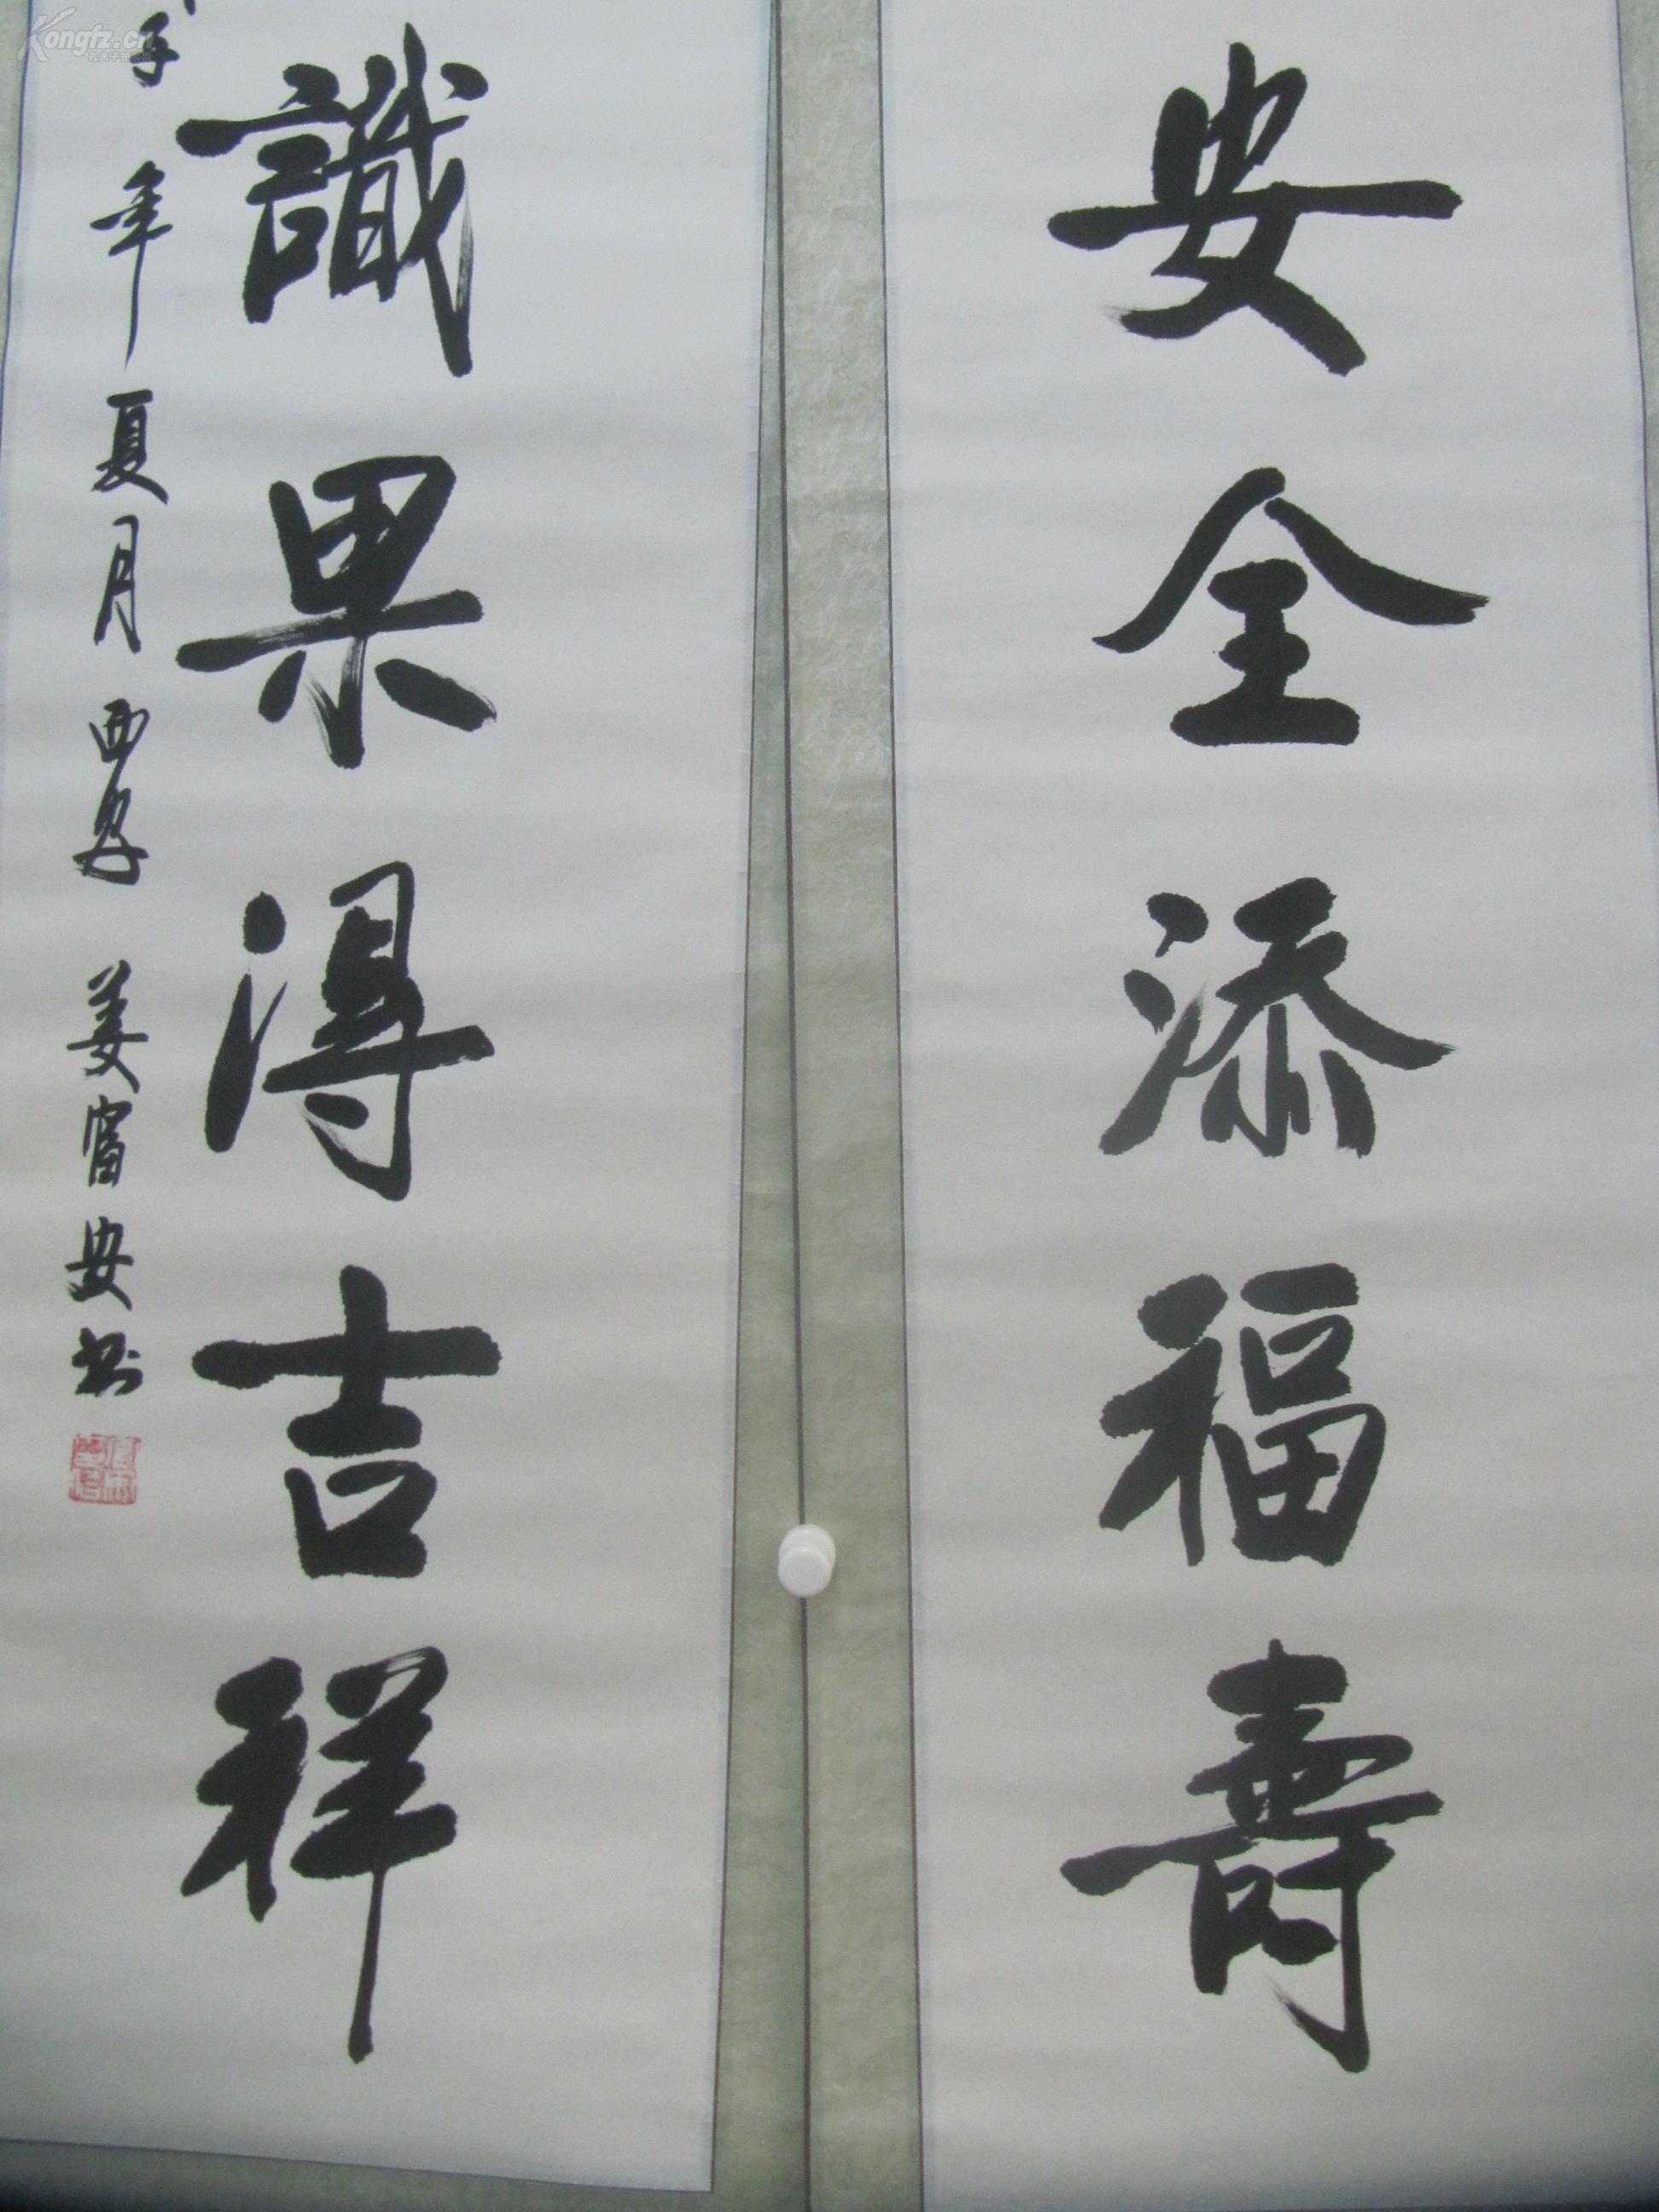 安全添福寿
識果得吉祥
子年夏月西安姜富安书
Kongfz.cn